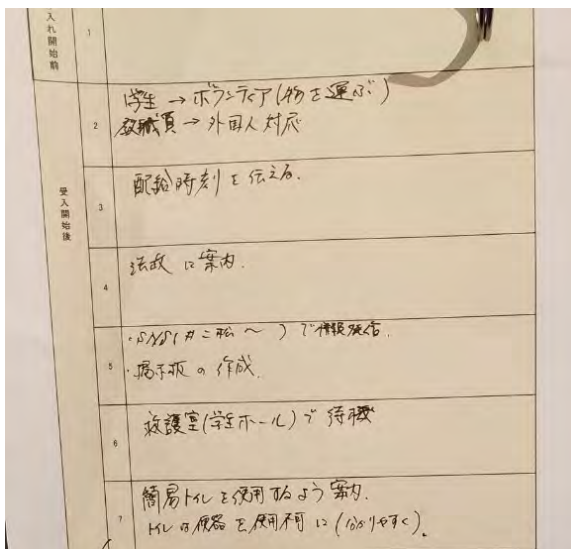 入れ開始前
1
受入開始後
2
学生 → ボランティア(物を運ぶ)
教職員 → 外国人対応
3
配給時刻を伝える.
4
法政に案内.
5
・SNS(#二松~)で情報発信.
・掲示板の作成.
6
救護室(学生ホール)で待機
7
簡易トイレを使用するよう案内.
トイレは便器を使用不可に(分かりやすく).